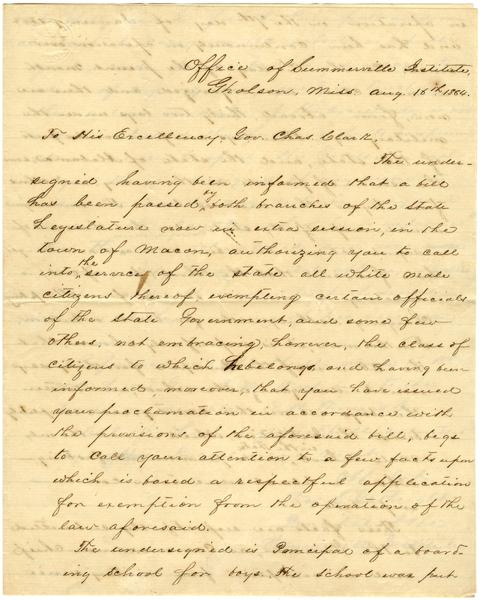 Office of Summerville Institute,
Gholson, Miss. Aug. 16th 1864.
To His Excellency Gov. Chas. Clark.
The under-
signed having been informed that a bill
has been passed by both branches of the State
Legislature now in extra session, in the
town of Macon, authorizing you to call
into the service of the state all white male
citizens thereof exempting certain officials
of the State Government, and some few
others, not embracing, however, the class of
citizens to which he belongs and having been
informed moreover, that you have issued
your proclamation in accordance with
the provisions of the aforesaid bill, begs
to call your attention to a few facts upon
which is based a respectful application
for exemption from the operation of the
law aforesaid.
The undersigned is Principal of a board-
ing school for boys. The school was put